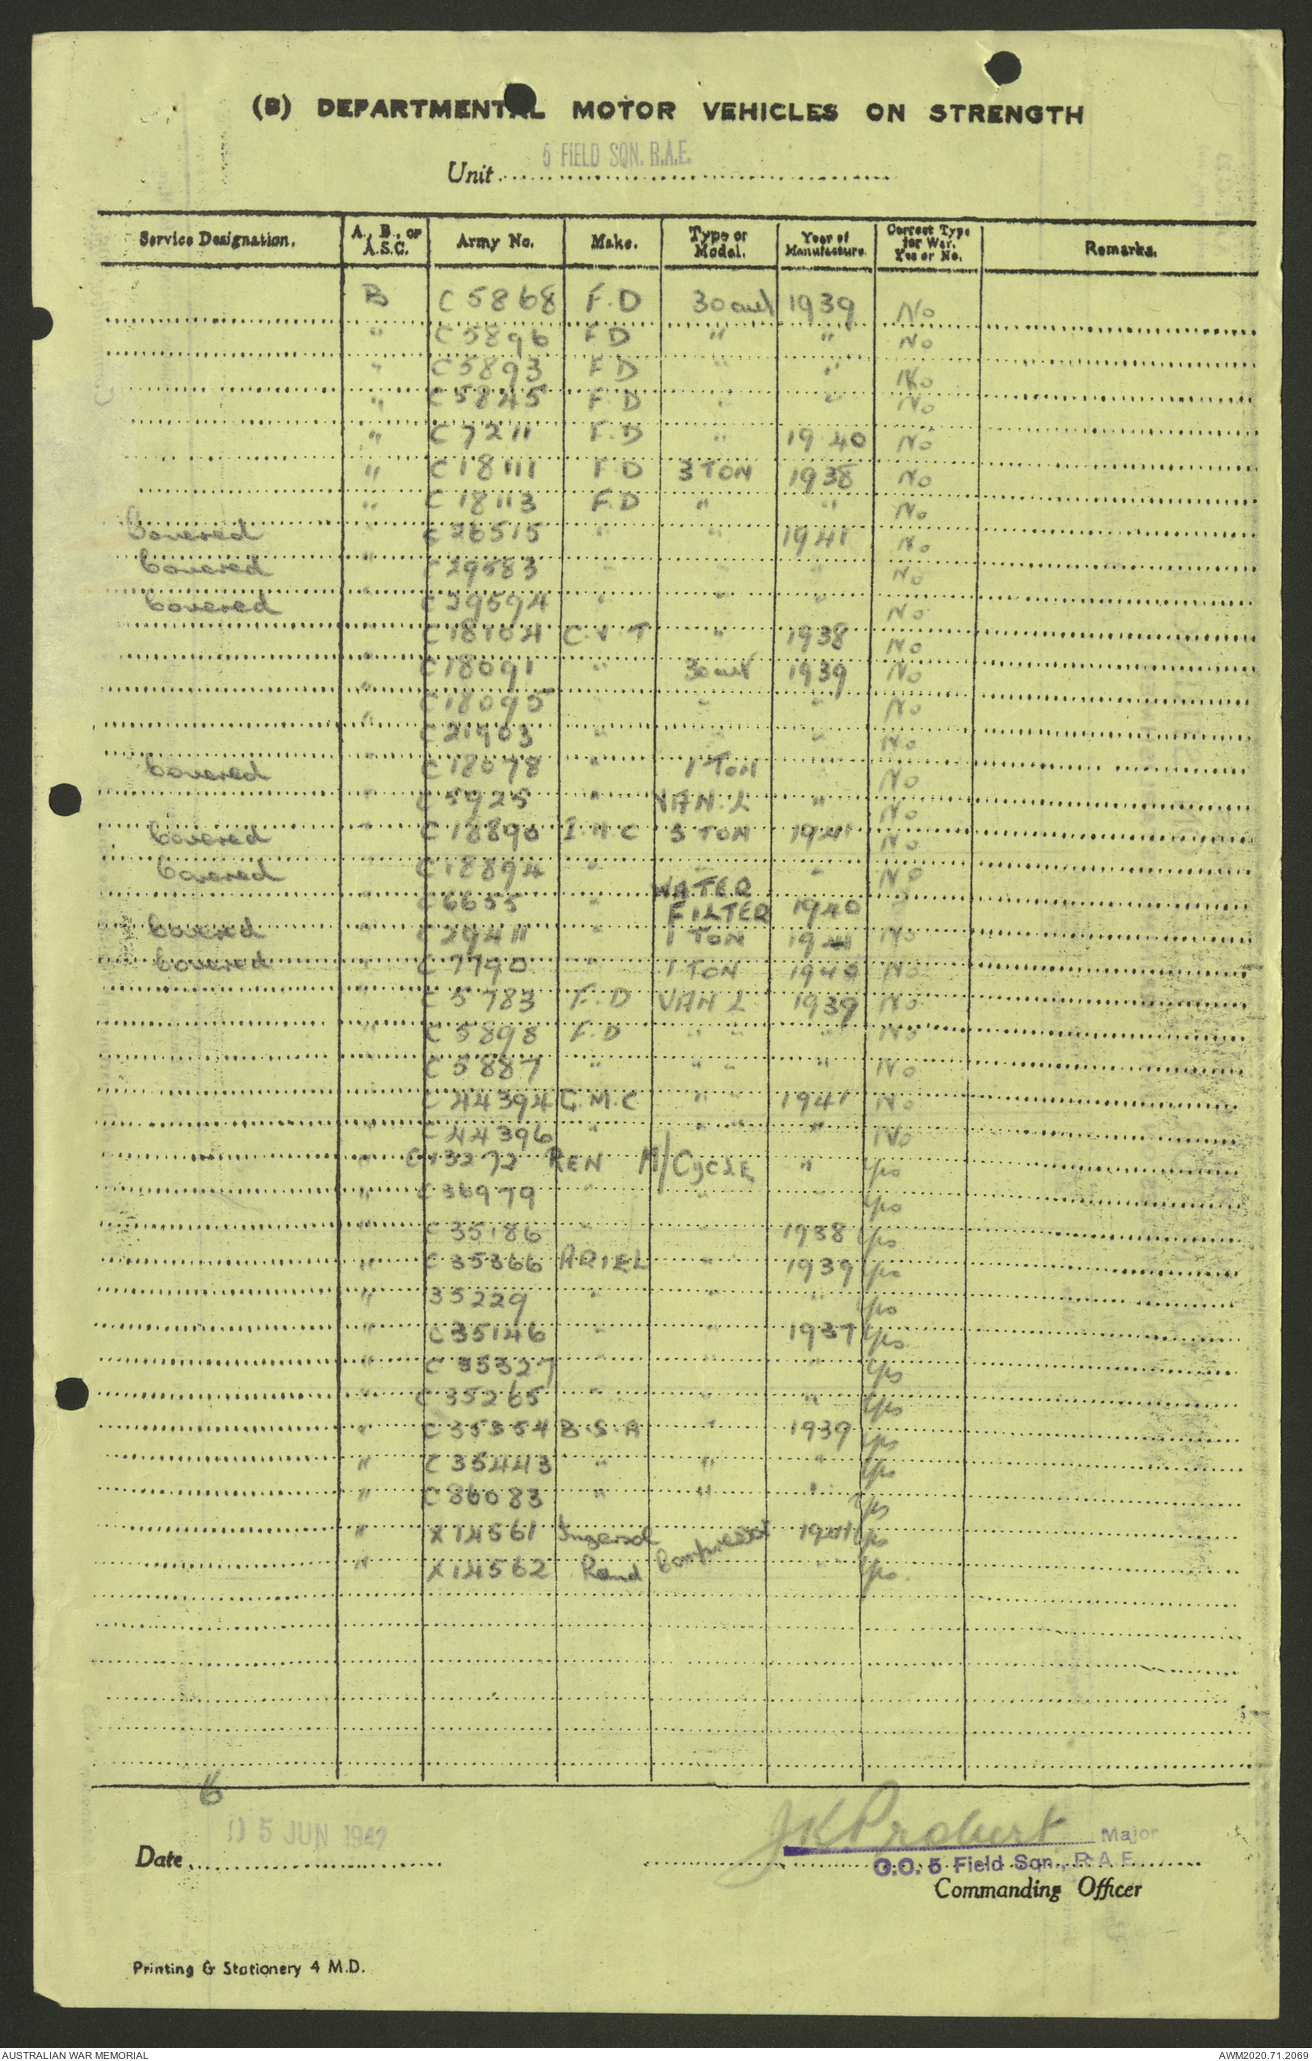 (B) DEPARTMENTAL MOTOR VEHICLES ON STRENGTH
Unit 5 FIELD SQN. R.A.E.
Service Designation. A., B., or A.S.C. Army No. Make. Type or Model. Year of Manufacture. Correct Type for War. Yes or No. Remarks.
B C 5868 F.D 30 cwt 1939 No
" C 5896 F D " " No
" C 5893 F D " " No
" C 5845 F.D " " No
" C 7211 F.D " 1940 No
" C 18111 F D 3 TON 1938 No
" C 18113 F.D " " No
Covered " C 26515 " " 1941 No
Covered " C 29583 " " " No
Covered C 29594 " " " No
C 18104 C V T " 1938 No
" C 18091 " 30 cwt 1939 No
" C 18095 " " " No
" C 21903 " " " No
Covered " C 18078 " 1 TON No
" C 5925 " VAN L " No
Covered " C 18890 I H C 3 TON 1941 No
Covered C 18894 " " " No
" C 6655 " WATER FILTER 1940
Covered " C 29411 " 1 TON 1941 No
Covered " C 7790 " 1 TON 1940 No
" C 5783 F.D VAN L 1939 No
" C 5898 F.D " " " No
" C 5887 " " " " No
C 44394 G.M.C " " 1941 No
" C 44396 " " " " No
" C 13272 REN M/CYCLE " Yes
" C 36979 " " " Yes
" C 35186 " " 1938 Yes
" C 35366 ARIEL " 1939 Yes
" 35229 " " " Yes
" C 35146 " " 1937 Yes
" C 35327 " " " Yes
" C 35265 " " " Yes
" C 35354 B.S.A " 1939 Yes
" C 35443 " " " Yes
" C 86083 " " " Yes
" X 14561 Ingersol Compressor 1941 Yes
" X 14562 Rand " Yes.
6
05 JUN 1942
Date
JK Probert Major
O.C. 5 Field Sqn., R A E
Commanding Officer
Printing & Stationery 4 M.D.
AUSTRALIAN WAR MEMORIAL AWM2020.71.2069